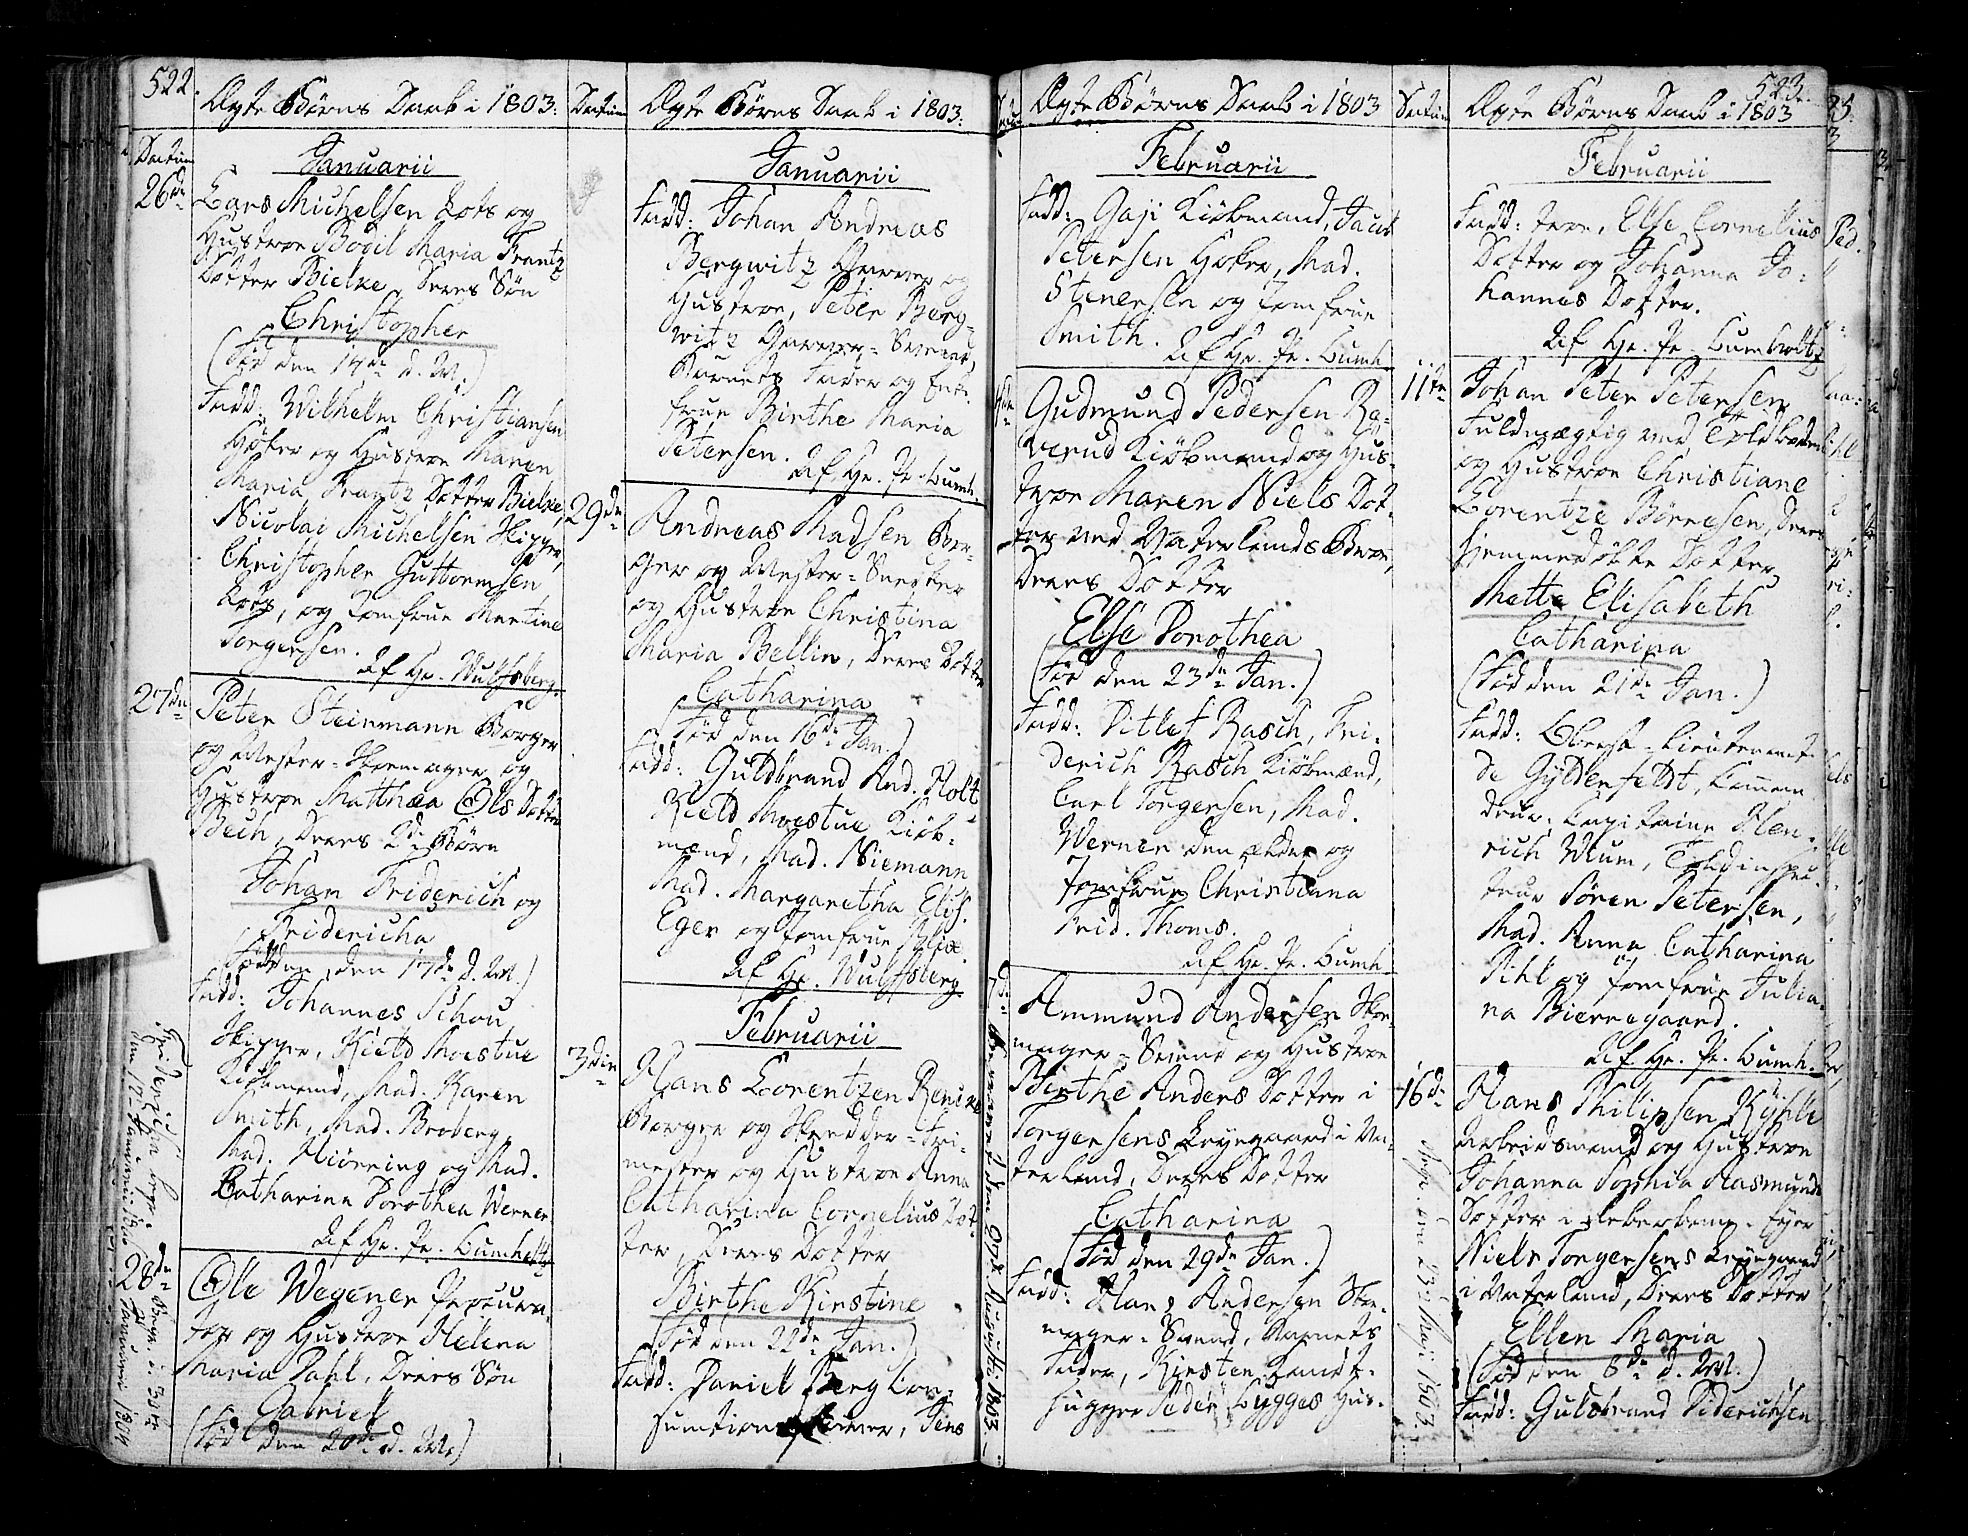 522.
Ægte Børns Daab i 1803.
Datum
Januarii
26de
Lars Michelsen Lots og
Hustroe Bodil Maria Frantz
Dotter Bielke, Deres Søn
Christopher
(Fød den 14de d. M.)
Fadd: Wilhelm Christiansen
Høker og Hustroe Maren
Maria Frantz Dotter Bielke,
Nicolai Michelsen Skipper,
Christopher Guttormsen
Lots, og Jomfrue Martine
Jørgensen.
Af Hr. Wulfsberg
27de
Peter Steinmann Borger
og Mester-Skomager og
Hustroe Matthæa Ols Dotter
Bech, Deres 2de Børn
Johan Friderich og
Fridericha
den 17de d. M.)
Fadd: Johannes Schou
Skipper, Kield Moestue
Kiøbmand, Mad. Karen
Smith, Mad. Broberg,
Mad. Hiørring og Mad.
Catharina Dorothea Werner
Af Hr. Pr. Lumholtz
28de
Ole Wegener Procura-
tor og Hustroe Helena
Maria Dahl, Deres Søn
Gabriel
(Fød den 20de d. M.)
Datum
Ægte Børns Daab i 1803.
Januarii
Fadd: Johan Andreas
Bergwitz Garver og
Hustroe, Peter Berg-
witz Garver-Svend,
Barnets Fader og Jom-
frue Birthe Maria
Petersen.
Af Hr. Pr. Lumh.
29de
Andreas Madsen Bor-
ger og Mester-Snedker
og Hustroe Christina
Maria Bellin, Deres Dotter
Catharina
(Fød den 16de Jan.)
Fadd: Guldbrand And. Holt
Kield Moestue Kiøb-
mænd, Mad. Niemann
Mad. Margaretha Elis.
Eger og Jomfrue Blix.
Af Hr. Wulfsberg
Februarii
3die
Hans Lorentzen
Borger og Skrædder-Fri-
mester og Hustroe Anna
Catharina Cornelius Dot-
ter, Deres Dotter
Birthe Kirstine
(Fød den 22de Jan.)
Fadd: Daniel Berg Con-
sumtions Jens
Ægte Børns Daab i 1803
Februarii
Fadd: Gaji Kiøbmand, Jacob
Petersen Høker, Mad.
Stenersen og Jomfrue
Smith.
Af Hr. Pr. Lumh.
Gudmund Pedersen Ra-
verud Kiøbmand og Hus-
troe Maren Niels Dot-
ter ved Vaterlands Broe,
Deres Dotter
Else Dorothea
(Fød den 23de Jan.)
Fadd: Ditlef Rasch, Fri-
derich Rasch Kiøbmænd,
Carl Jørgensen, Mad.
Werner den ældre og
Jomfrue Christiana
Frid. Thoms.
Af Hr. Pr. Lumh.
7de
Ammund Andersen Skoe-
mager-Svend og Hustroe
Birthe Anders Dotter i
Jørgensens Løngaard i Va-
terland, Deres Dotter
Catharina
(Fød den 29de Jan.)
Fadd: Hans Andersen Skoe-
mager-Svend, Barnets
Fader, Kirsten
hugger Peder Bygges Hus-
Datum
523.
Ægte Børns Daab i 1803
Februarii
Fadd: troe, Else Cornelius
Dotter og Johanna Jo-
hannes Dotter.
Af Hr. Pr. Lumholtz
11te
Johan Peter Petersen
Fuldmægtig ved Toldboden
og Hustroe Christiane
Lorentze Børresen, Deres
hjemmedøbte Dotter
Mette Elisabeth
Catharina
(Fød den 21de Jan.)
Fadd: Oberst-Lieutenant
de Gyldenfeldt, Comman-
deur-Capitaine Hen-
rich Mum, Toldinspec-
teur Søren Petersen,
Mad. Anna Catharina
Pihl og Jomfrue Julia-
na Bierregaard.
Af Hr. Pr. Lumh.
16de
Hans Philipsen
Arbeidsmand og Hustroe
Johanna Sophia Rasmund
Dotter i
Niels Jørgensens Løngaard
i Vaterland, Deres Dotter
Ellen Maria
(Fød den 8de d. M.)
Fadd: Guldbrand Diderichsen